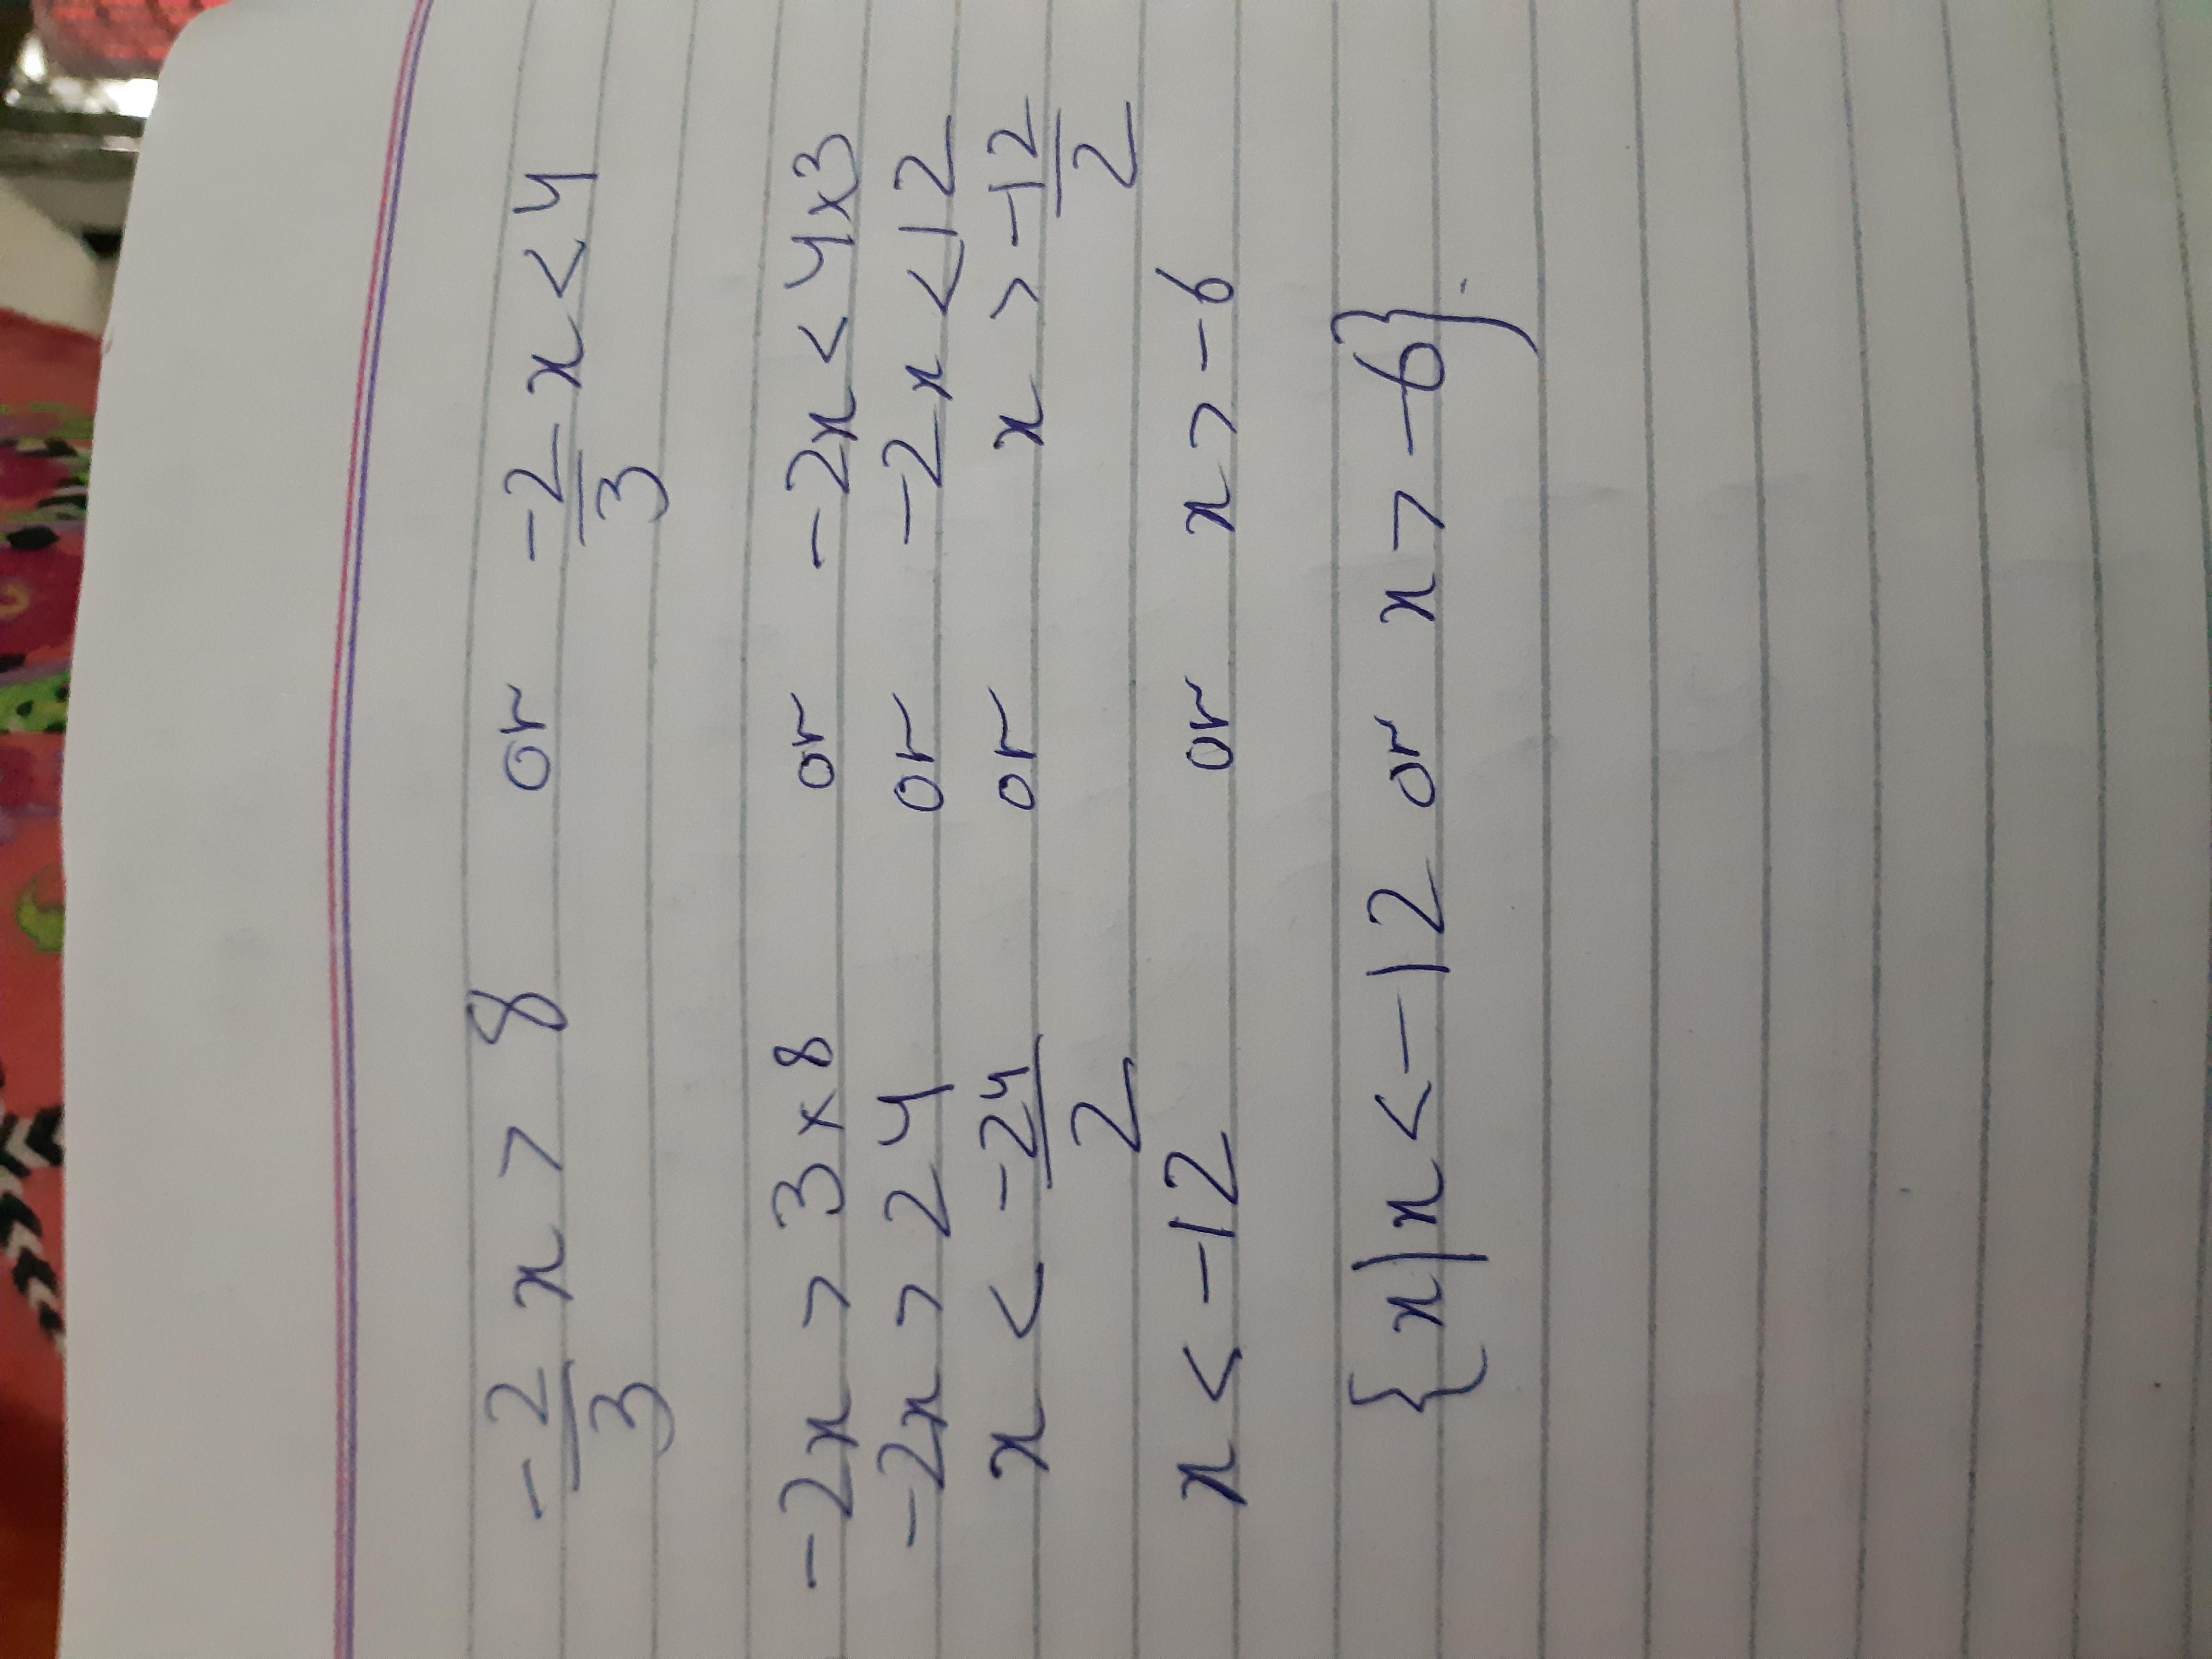 -2/3 x > 8 or -2/3 x < 4
-2x > 3 × 8 or -2x < 4 × 3
-2x > 24 or -2x < 12
x < -24/2 or x > -12/2
x < -12 or x > -6
{x|x < -12 or x > -6}.